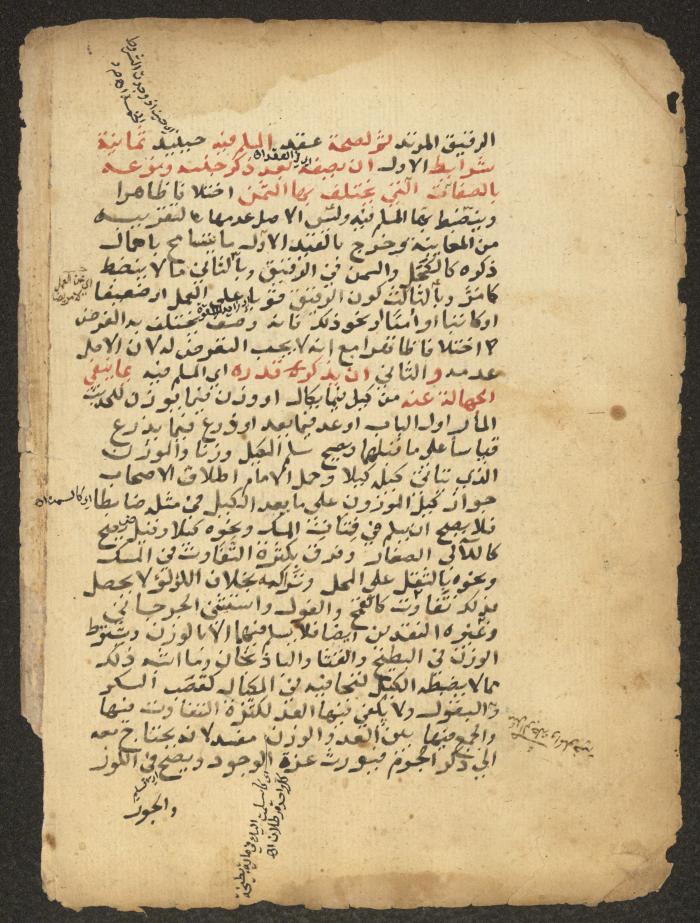 الرقيق المرتد ثم لصحة عقد المسلم فيه حينئذ ثمانية
شرايط الاول ان يصفه بعد ذكر جنسه ونوعه
بالصفات التي يختلف بها الثمن اختلافا ظاهرا
وينضبط بها المسلم فيه وليس الاصل عدمها لتقريبه
من المعاينة وخرج بالقيد الاول ما يتسامح باهمال
ذكره كالكحل والسمن في الرقيق وبالثاني ما لا ينضبط
كما مر وبالثالث كون الرقيق قويا على العمل او ضعيفا
او كاتبا او اميا او نحو ذلك فانه وصف يختلف به الغرض
اختلافا ظاهرا مع انه لا يجب التعرض له لان الاصل
عدمه والثاني ان يذكر قدره اي المسلم فيه بما ينفي
الجهالة عنه من كيل فيما يكال او وزن فيما يوزن للحديث
المار اول الباب او عد فيما يعد او ذرع فيما يذرع
قياسا على ما قبلها ويصح سلم المكيل وزنا والموزون
الذي يتاتى كيله كيلا وحمل الامام اطلاق الاصحاب
جواز كيل الموزون على ما يعد الكيل في مثله ضابطا
فلا يصح ان يسلم في فتات المسك ونحوه كيلا وقيل يصح
كاللآلي الصغار وفرق بكثرة التفاوت في المسك
ونحوه بالثقل على المحل وتراكمه بخلاف اللؤلؤ لا يحصل
بذلك تفاوت كالقمح والفول واستثنى الجرجاني
وغيره النقدين ايضا فلا يسلم فيهما الا بالوزن ويشترط
الوزن في البطيخ والقثا والباذنجان وما اشبه ذلك
مما لا يضبطه الكيل لتجافيه في المكيال كقصب السكر
والبقول ولا يكفي فيها العد لكثرة التفاوت فيها
والجمع فيها بين العد والوزن مفسد لانه يحتاج معه
الى ذكر الجرم فيورث عزة الوجود ويصح في الجوز